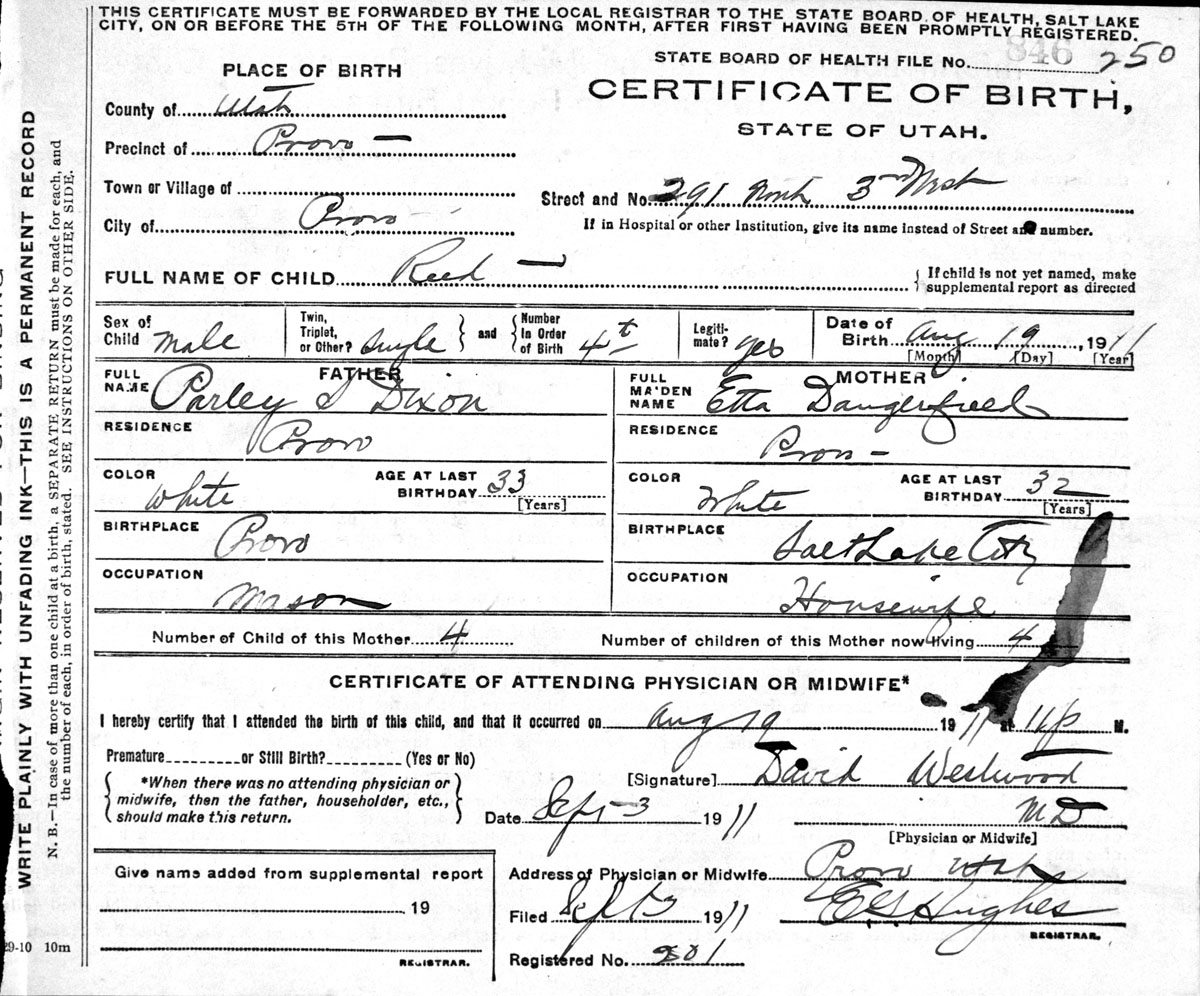 THIS CERTIFICATE MUST BE FORWARDED BY THE LOCAL REGISTRAR TO THE STATE BOARD OF HEALTH, SALT LAKE
CITY, ON OR BEFORE THE 5TH OF THE FOLLOWING MONTH, AFTER FIRST HAVING BEEN PROMPTLY REGISTERED.
STATE BOARD OF HEALTH FILE No. 846 250
PLACE OF BIRTH
CERTIFICATE OF BIRTH,
STATE OF UTAH.
County of Utah
Precinct of Provo —
Town or Village of
Street and No. 291 North 3rd West
City of Provo
If in Hospital or other Institution, give its name instead of Street and number.
FULL NAME OF CHILD Reed —
If child is not yet named, make
supplemental report as directed
Sex of Child Male
Twin, Triplet, or Other? Single and Number In Order of Birth 4th
Legiti-mate? yes
Date of Birth Aug 19, 1911
[Month] [Day] [Year]
FATHER
FULL NAME Parley S Dixon
MOTHER
FULL MAIDEN NAME Etta Dangerfield
RESIDENCE Provo
RESIDENCE Provo —
COLOR White AGE AT LAST BIRTHDAY 33 [Years]
COLOR White AGE AT LAST BIRTHDAY 32 [Years]
BIRTHPLACE Provo
BIRTHPLACE Salt Lake City
OCCUPATION Mason
OCCUPATION Housewife
Number of Child of this Mother 4 Number of children of this Mother now living 4
CERTIFICATE OF ATTENDING PHYSICIAN OR MIDWIFE*
I hereby certify that I attended the birth of this child, and that it occurred on Aug 19 1911 at M.
Premature or Still Birth? (Yes or No)
[Signature] David Westwood
*When there was no attending physician or
midwife, then the father, householder, etc.,
should make this return.
Date Sept 3 1911 M D
[Physician or Midwife]
Give name added from supplemental report
19
REGISTRAR.
Address of Physician or Midwife Provo Utah
Filed Sept 3 1911 Hughes
REGISTRAR.
Registered No. 201
WRITE PLAINLY WITH UNFADING INK—THIS IS A PERMANENT RECORD
N. B.—In case of more than one child at a birth, a SEPARATE RETURN must be made for each, and
the number of each, in order of birth, stated. SEE INSTRUCTIONS ON OTHER SIDE.
29-10 10m